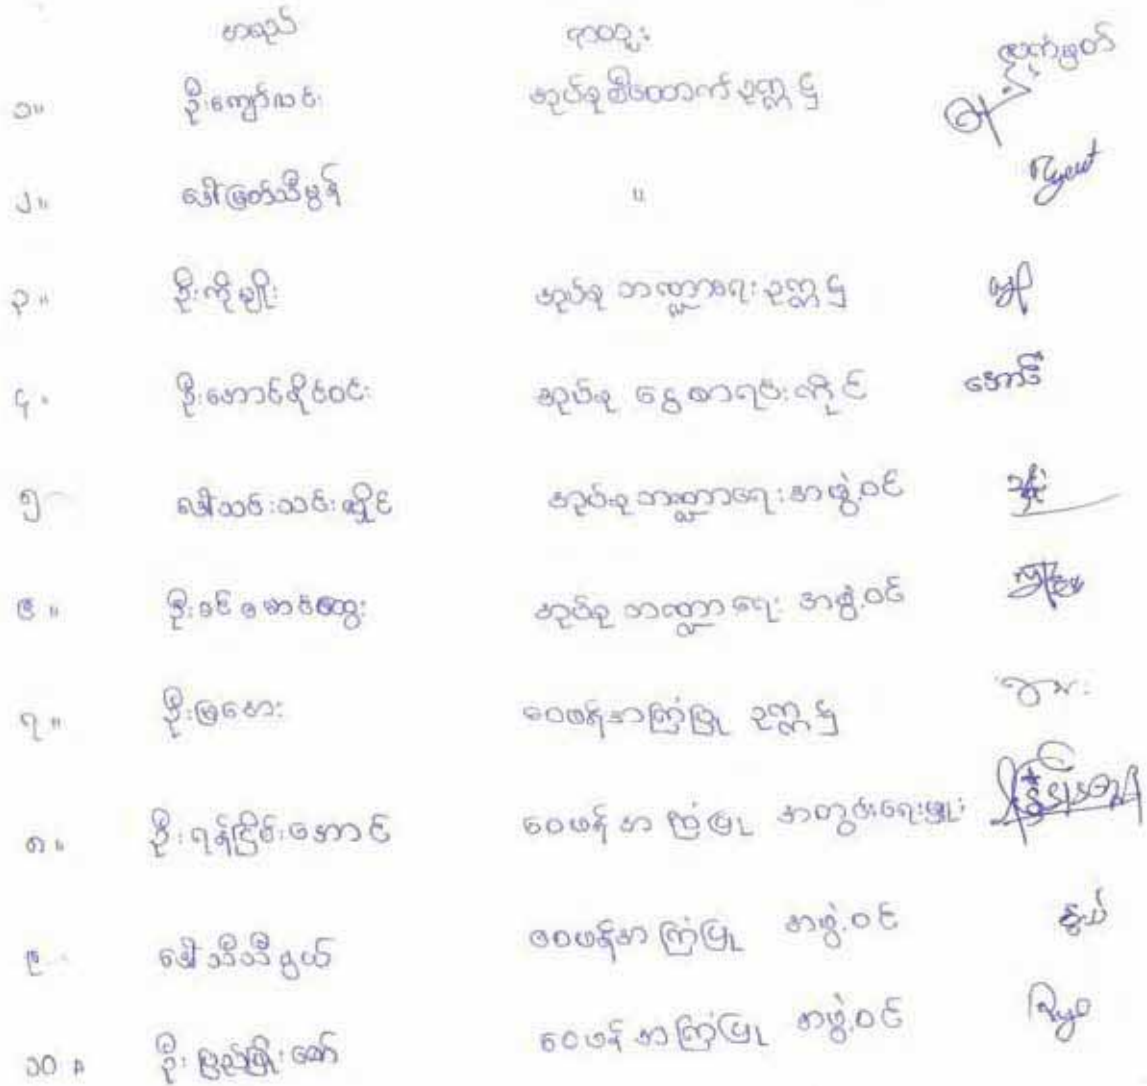 အမည် ရာထူး လက်မှတ်
၁။ ဦးကျော်လင်း အုပ်စုစီထောက်ဥက္ကဋ္ဌ
၂။ ဒေါ်မြတ်သီမွန် "
၃။ ဦးကိုမျိုး အုပ်စု ဘဏ္ဍာရေးဥက္ကဋ္ဌ
၄။ ဦးအောင်နိုင်ဝင်း အုပ်စု ငွေစာရင်းကိုင်
၅ ဒေါ်သင်းသင်းလှိုင် အုပ်စုဘဏ္ဍာရေးအဖွဲ့ဝင်
၆။ ဦးခင်မောင်ထွေး အုပ်စု ဘဏ္ဍာရေး အဖွဲ့ဝင်
၇။ ဦးမြအေး ဝေဖန်အကြံပြု ဥက္ကဋ္ဌ
၈။ ဦးရန်ငြိမ်းအောင် ဝေဖန်အကြံပြု အတွင်းရေးမှူး
၉ ဒေါ်သီသီနွယ် ဝေဖန်အကြံပြု အဖွဲ့ဝင် နွယ်
၁၀။ ဦးပြည်ဖြိုးဇော် ဝေဖန်အကြံပြု အဖွဲ့ဝင်